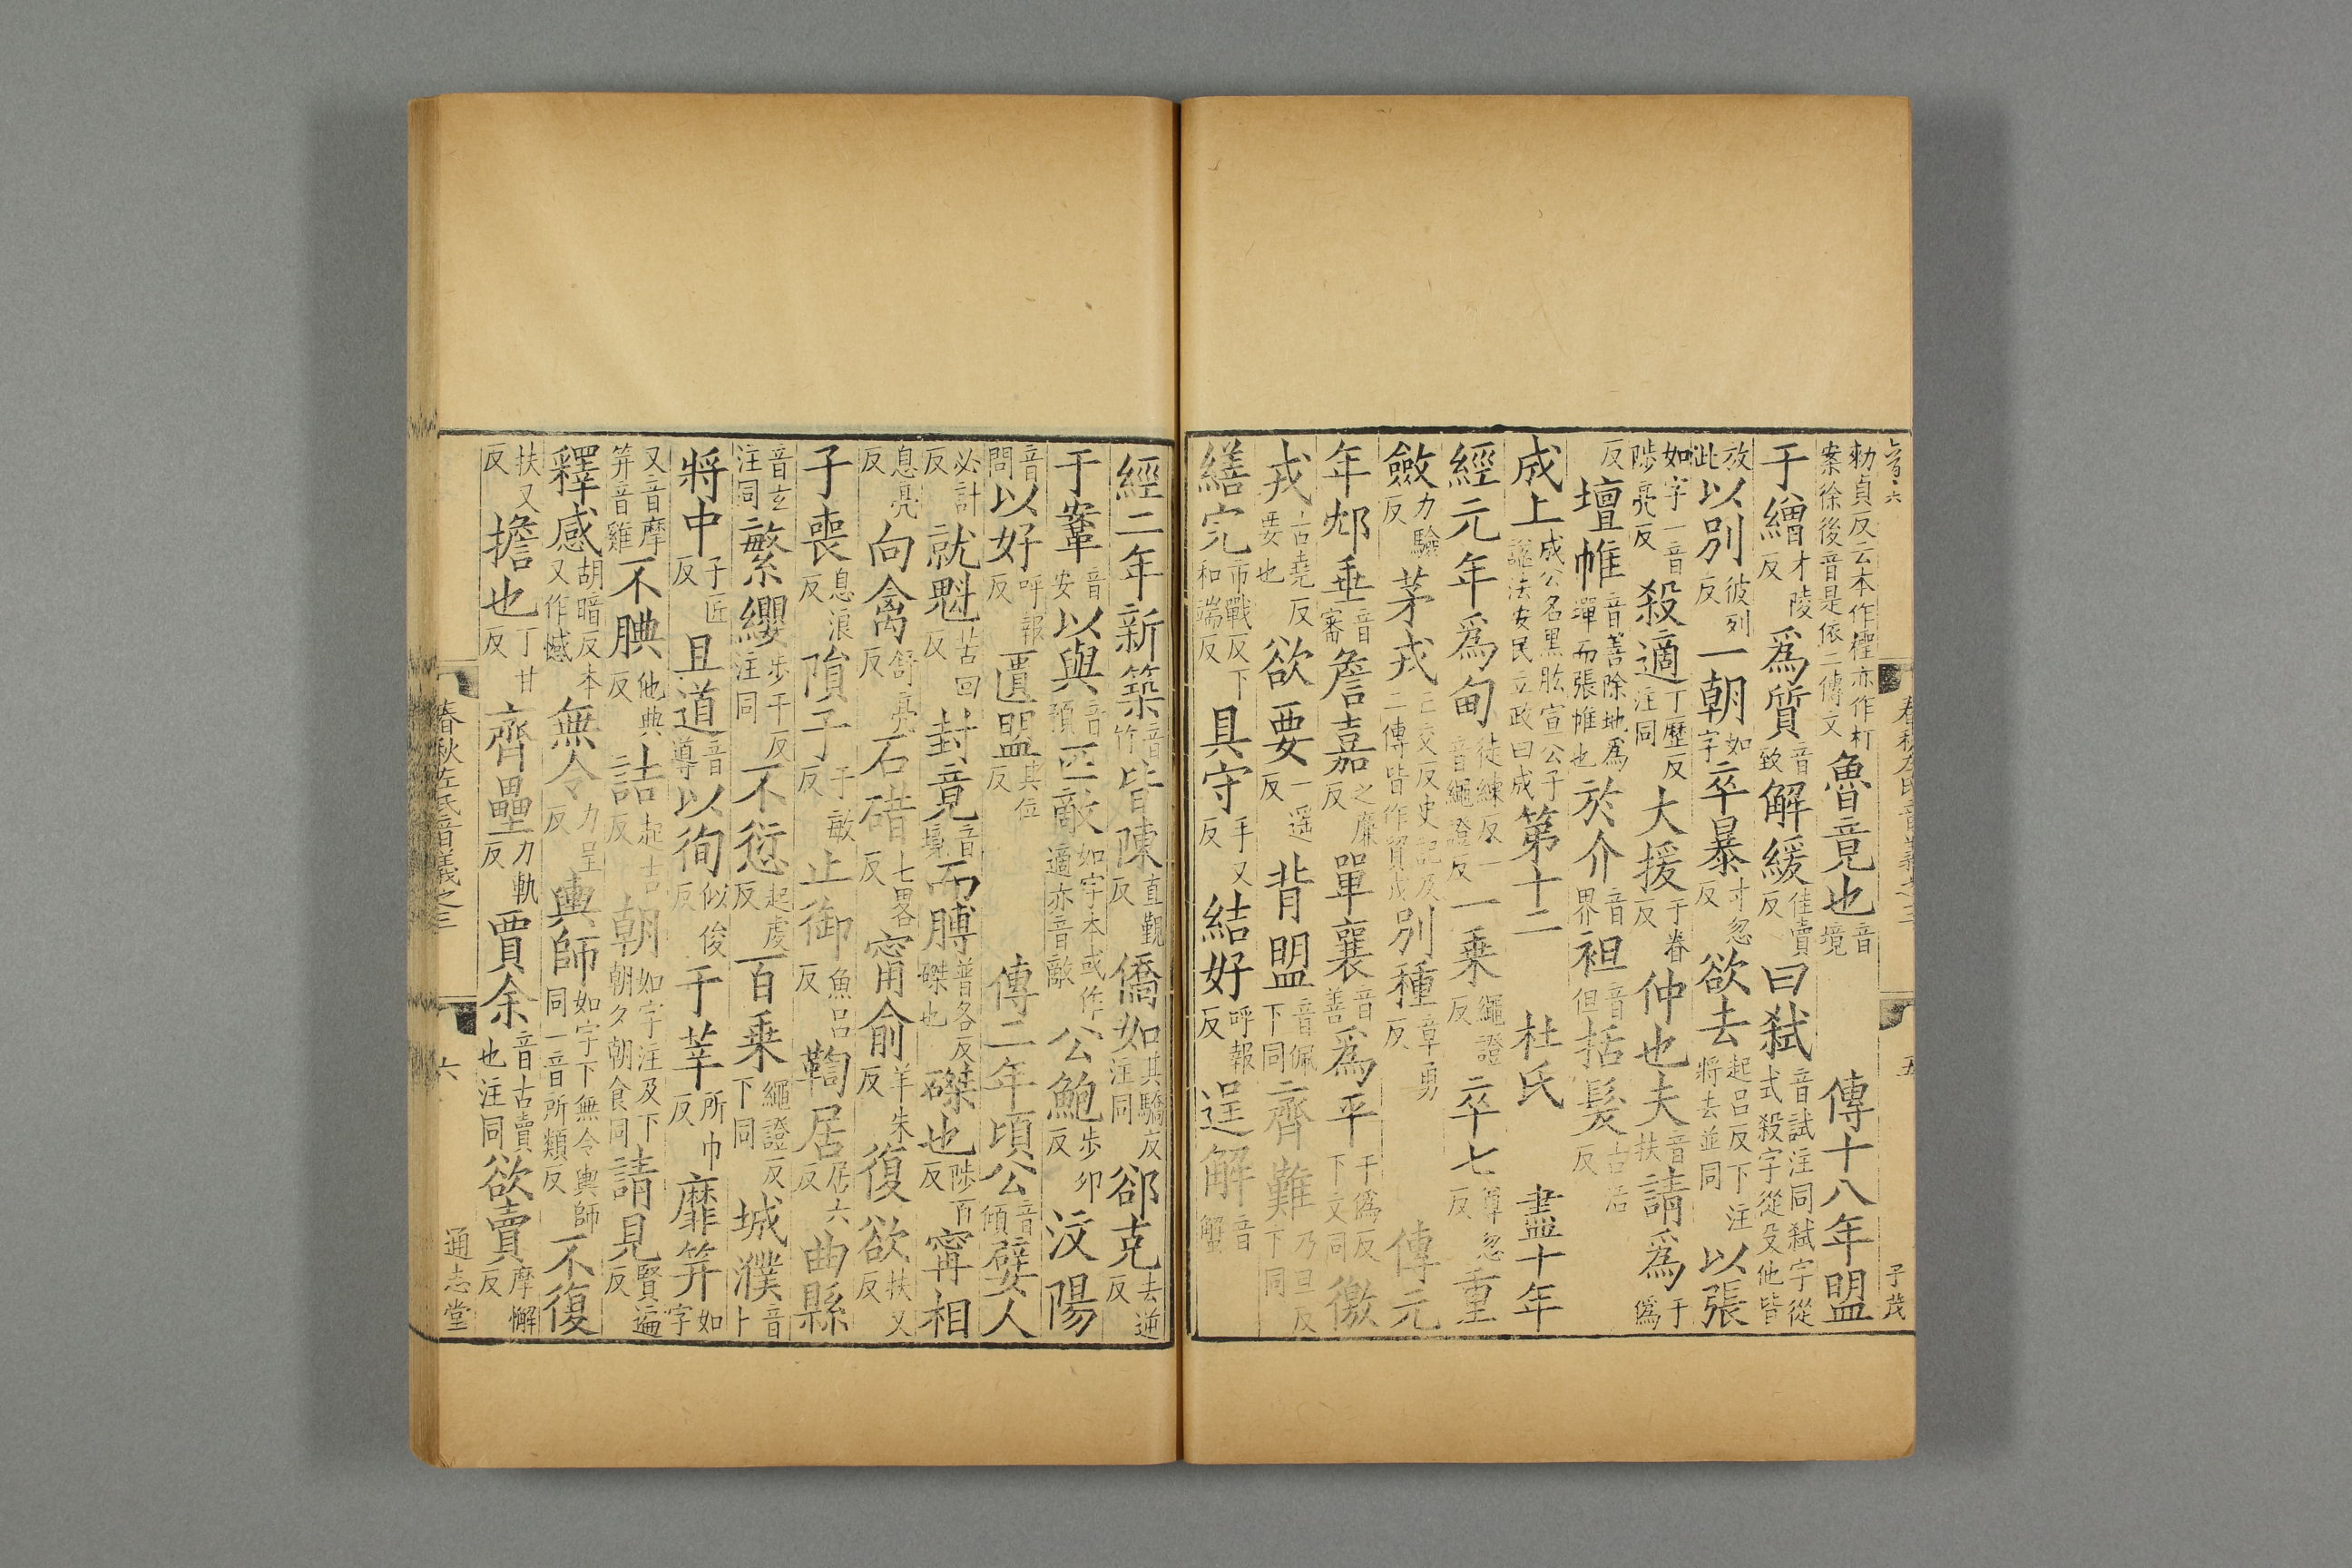 勑貞反云本作檉亦作朾案徐後音是依二傳文 魯竟也音境 傳十八年盟
于繒才陵反 爲質音致 解緩佳賣反 曰弒音試注同弒字從式殺字從殳他皆
放此 以別彼列反 一朝如字 卒暴寸忽反 欲去起呂反下注將去並同 以張
如字一音陟亮反 殺適丁歷反注同 大援于眷反 仲也夫音扶 請爲于僞
反 壇帷音善除地爲墠而張帷也 於介音界 袒音但 括髮古活反
成上成公名黑肱宣公子謚法安民立政曰成 第十二 杜氏 盡十年
經元年爲甸徒練反一音繩證反 一乘繩證反 卒七尊忽反 重
斂力驗反 茅戎亡交反史記及二傳皆作貿戎 別種章勇反 傳元
年邥垂音審 詹嘉之廉反 單襄音善 爲平于僞反下文同 徼
戎古堯反要也 欲要一遥反 背盟音佩下同 齊難乃旦反下同
繕完市戰反下和端反 具守手又反 結好呼報反 逞解音蟹
春秋左氏音義之三 五
子茂
經二年新築音竹 皆陳直觀反 僑如其驕反注同 郤克去逆反
于鞌音安 以與音預 匹敵如字本或作適亦音敵 公鮑步卯反 汶陽
音問 以好呼報反 匱盟其位反 傳二年頃公音傾 嬖人
必計反 就魁苦回反 封竟音境 而膊普各反磔也 磔也陟百反 甯相
息亮反 向禽舒亮反 石碏七畧反 甯俞羊朱反 復欲扶又反
子喪息浪反 隕子于敏反 止御魚呂反 鞫居居六反 曲縣
音玄注同 繁纓步干反注同 不愆起虔反 百乘繩證反下同 城濮音卜
將中子匠反 且道音導 以徇似俊反 于莘所巾反 靡笄如字
又音摩笄音雞 不腆他典反 詰起吉反 朝如字注及下朝夕朝食同 請見賢遍反
釋感胡暗反本又作憾 無令力呈反 輿師如字下無令輿師同一音所類反 不復
扶又反 擔也丁甘反 齊壘力軌反 賈余音古賣也注同 欲賣摩懈反
春秋左氏音義之三 六
通志堂